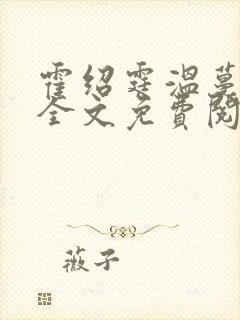 霍绍霆温蔓
全文免费阅
薇子